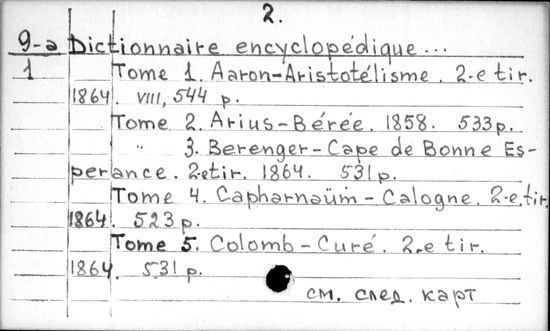 2.
9-a Dictionnaire encyclopédique...
1 Tome 1. Aaron-Aristotélisme. 2-e tir.
1864. VIII, 544 p.
Tome 2. Arius-Bérée. 1858. 533 p.
" 3. Berenger-Cape de Bonne Es-
perance. 2e tir. 1864. 531 p.
Tome 4. Capharnaüm-Calogne. 2-e tir.
1864. 523 p.
Tome 5. Colomb-Curé. 2-e tir.
1864. 531 p.
см. след. карт